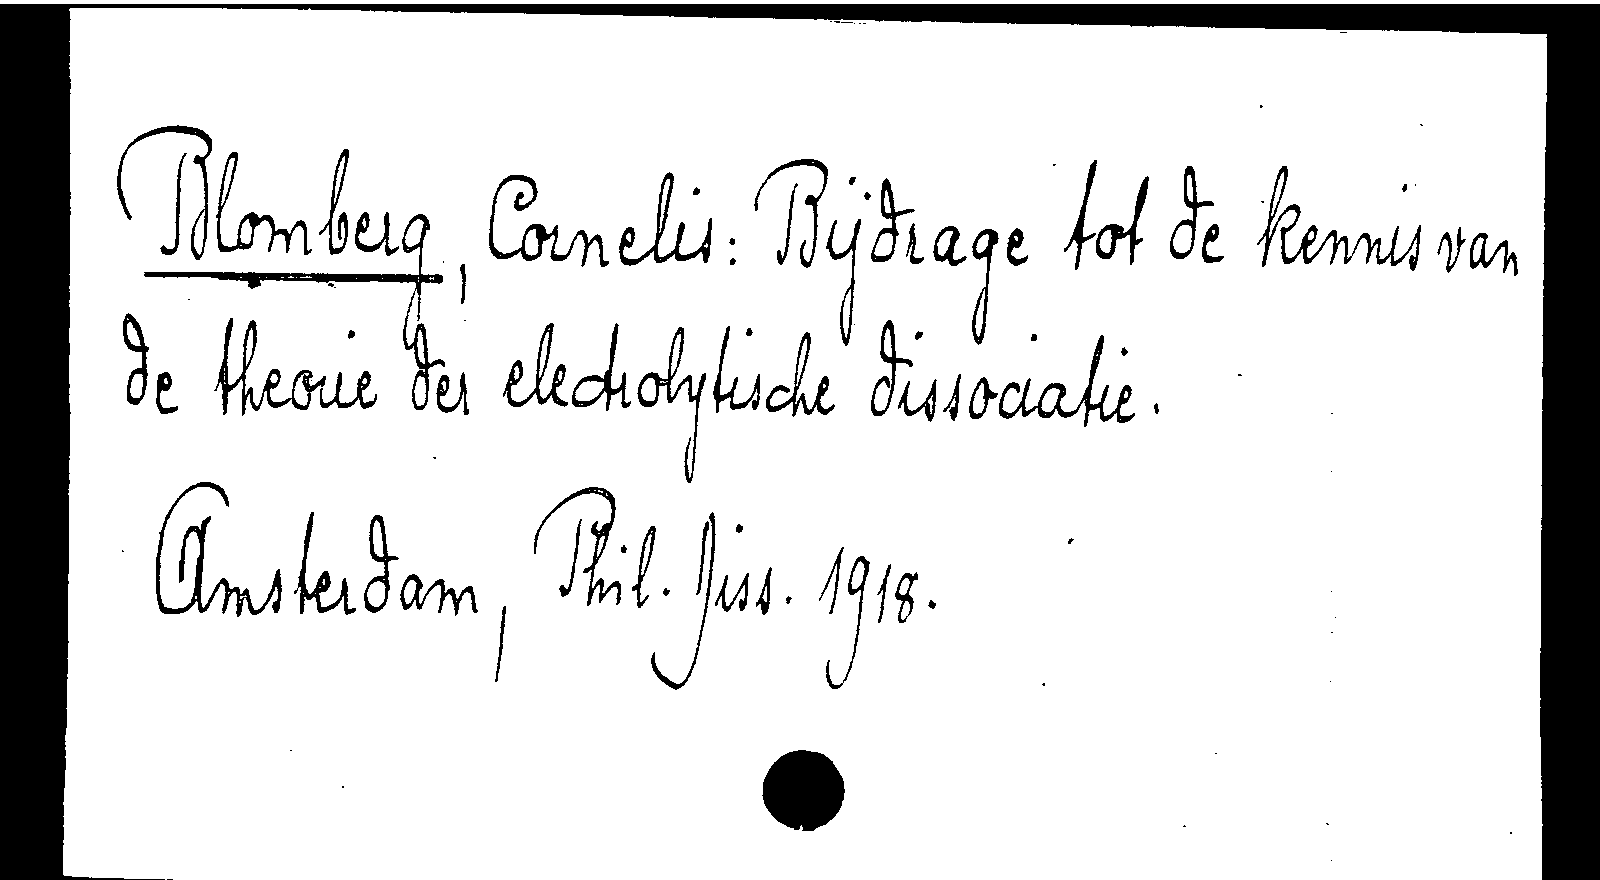 Blomberg, Cornelis: Bijdrage tot de kennis van
de theorie der electrolytische dissociatie.
Amsterdam, Phil. Diss. 1918.